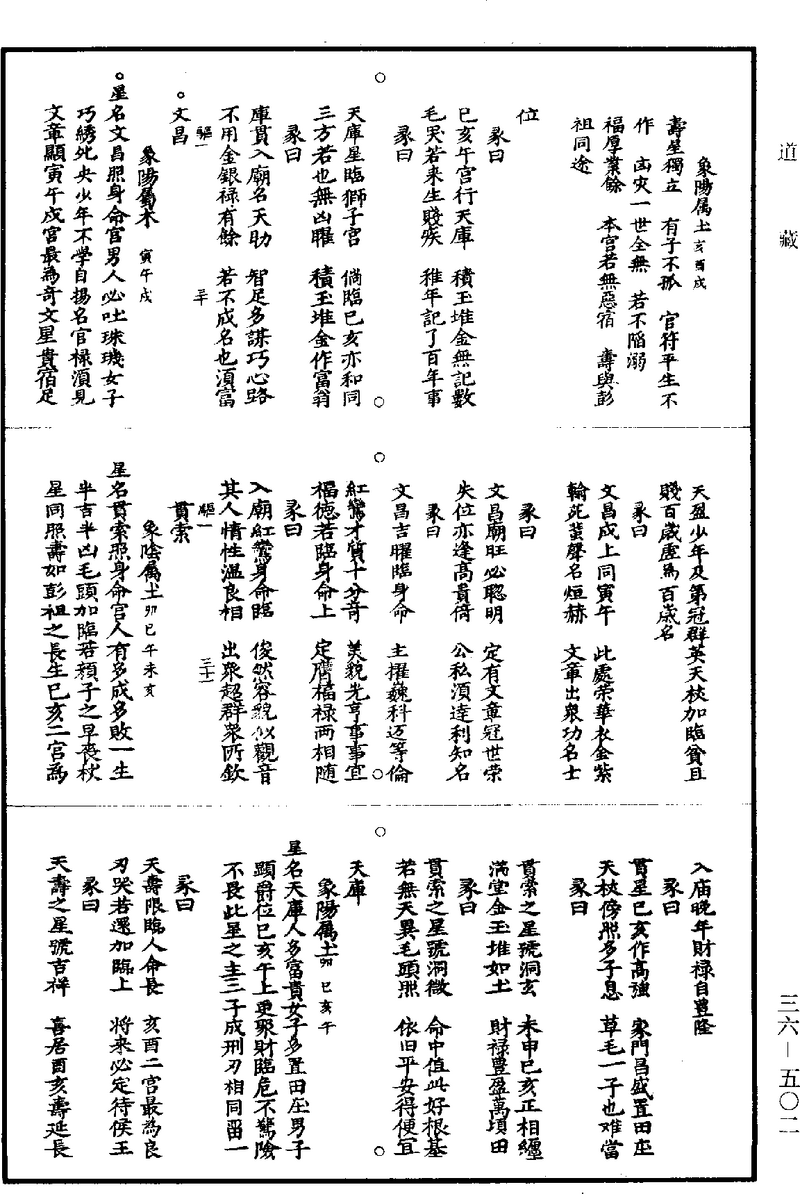 道藏
象陽属土亥酉戍
壽星獨立　有子不孤　官符平生不
作　凶灾一世全無　若不陷溺
福厚業餘　本宮若無惡宿　壽與彭
祖同途
位
彖曰
巳亥午宮行天庫　積玉堆金無記數
毛哭若来生賤疾　稚年記了百年事
彖曰
天庫星臨獅子宮　倘臨巳亥亦和同
三方若也無凶曜　積玉堆金作富翁
彖曰
庫貫入廟名天助　智足多謀巧心路
不用金銀禄有餘　若不成名也湏富
驅一　三十
文昌
象陽属木　寅午戍
星名文昌照身命官男人必吐珠璣女子
巧綉死央少年不學自揚名官禄湏見
文章顯寅午戍宮最為奇文星貴宿足
天盈少年及第冠群英天杖加臨貧且
賤百歲虛為百歲名
彖曰
文昌戍上同寅午　此處荣華衣金紫
翰死蜚聲名烜赫　文章出衆功名士
彖曰
文昌廟旺必聰明　定有文章冠世荣
失位亦逢高貴倚　公私湏達利知名
彖曰
文昌吉曜臨身命　主擢巍科迈等倫
紅鸞才質十分竒　美貌光亨事事宜
福德若臨身命上　定膺福禄两相随
彖曰
入廟紅鸞身命臨　俊然容貌似觀音
其人情性溫良相　出衆超群衆所欽
驅一　三十一
貫索
象陰属土卯巳午未亥
星名貫索照身命宮人有多成多敗一生
半吉半凶毛頭加臨若顔子之早喪杖
星同照壽如彭祖之長生巳亥二宮為
入庙晚年財禄自豊隆
彖曰
貫星巳亥作高強　家門昌盛置田庄
天杖傍照多子息　草毛一子也难當
彖曰
貫索之星號洞玄　未申巳亥正相纏
滿堂金玉堆如土　財禄豊盈萬頃田
彖曰
貫索之星號洞微　命中值此好根基
若無天異毛頭照　依旧平安得便宜
天庫
象陽属土卯巳亥午
星名天庫人多富貴女子多置田庄男子
顕爵位巳亥午上更聚財臨危不驚險
不畏此星之主三子成刑刃相同留一
彖曰
天壽限臨人命長　亥酉二宮最為良
刃哭若還加臨上　将来必定待侯王
彖曰
天壽之星號吉祥　喜居酉亥壽延長
三六－五〇二